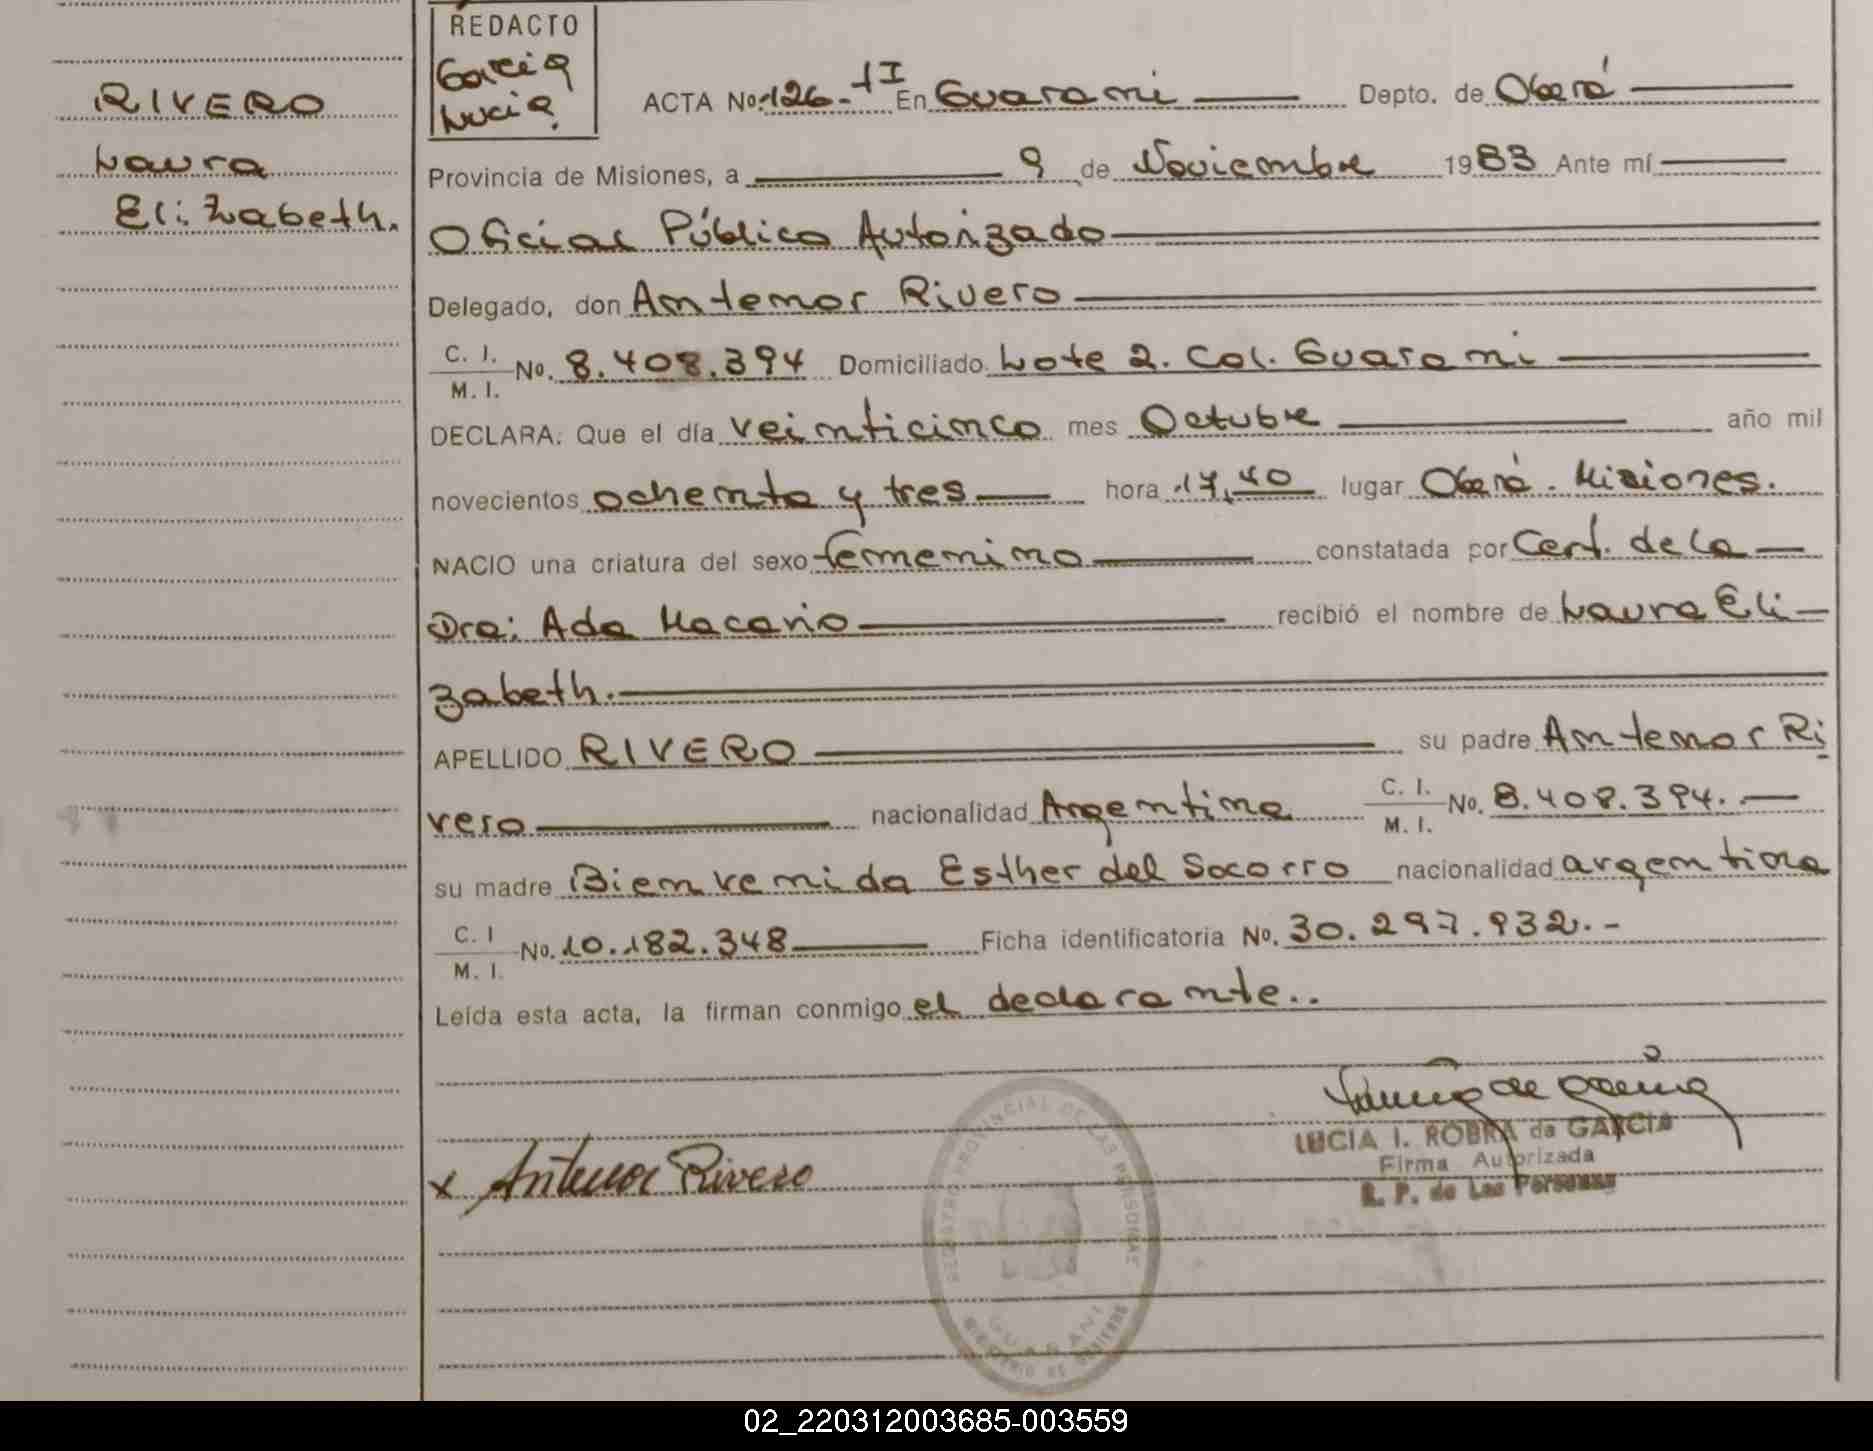 REDACTO
Garcia
Lucia.
RIVERO
Laura
Elizabeth.
ACTA No. 126-tI En Guarani Depto. de Oberá
Provincia de Misiones, a 9 de Noviembre 1983 Ante mí
Oficial Público Autorizado
Delegado, don Antenor Rivero
C. I.
M. I. No. 8.408.394 Domiciliado Lote 2. Col. Guarani
DECLARA: Que el día veinticinco mes Octubre año mil
novecientos ochenta y tres hora 17,40 lugar Oberá. Misiones.
NACIO una criatura del sexo femenino constatada por Cert. de la
Dra: Ada Macario recibió el nombre de Laura Eli-
zabeth.
APELLIDO RIVERO su padre Antenor Ri
vero nacionalidad Argentina C. I.
M. I. No. 8.408.394.-
su madre Bienvenida Esther del Socorro nacionalidad argentina
C. I
M. I. No. 10.182.348 Ficha identificatoria No. 30.297.932.-
Leída esta acta, la firman conmigo el declarante..
x Antenor Rivero
LUCIA I. ROBRA de GARCIA
Firma Autorizada
R. P. de Las Personas
REGISTRO PROVINCIAL DE LAS PERSONAS
GUARANI
MINISTERIO DE GOBIERNO
02_220312003685-003559